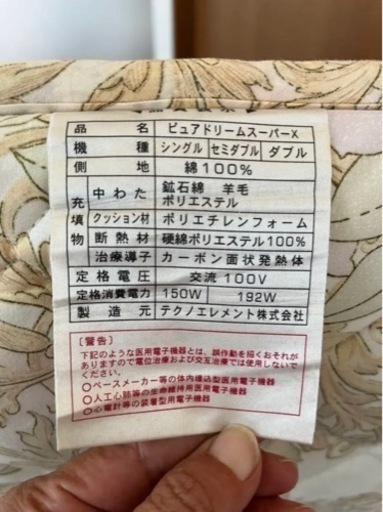 品名 ピュアドリームスーパーX
機種 シングル セミダブル ダブル
側地 綿100%
充填物 中わた 鉱石綿 羊毛
ポリエステル
クッション材 ポリエチレンフォーム
断熱材 硬綿ポリエステル100%
治療導子 カーボン面状発熱体
定格電圧 交流100V
定格消費電力 150W 192W
製造元 テクノエレメント株式会社
〔警告〕
下記のような医用電子機器とは、誤作動を招くおそれが
ありますので電位治療および交互治療では使用しないで
ください。
○ペースメーカー等の体内埋込型医用電子機器
○人工心肺等の生命維持用医用電子機器
○心電計等の装着型用電子機器